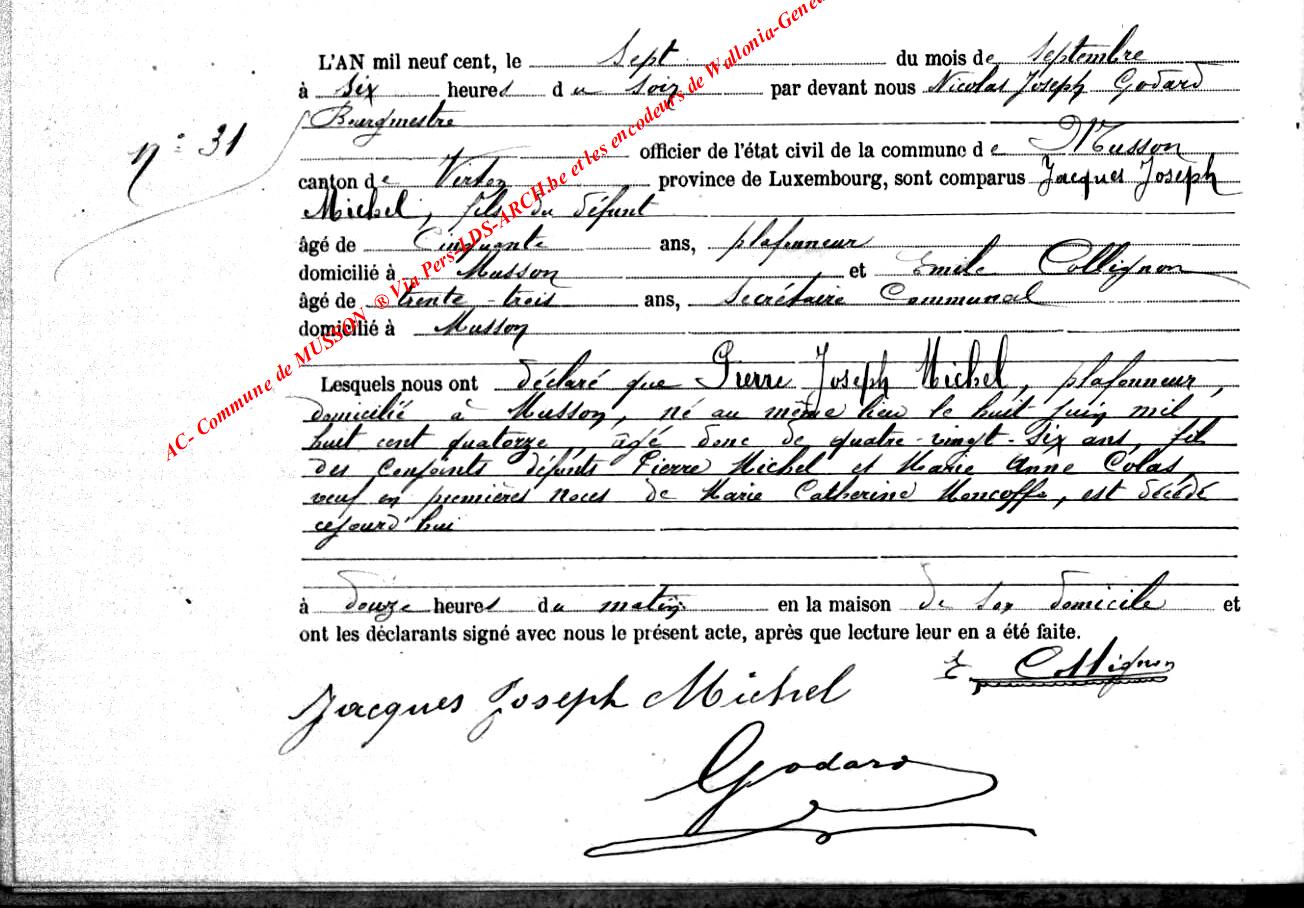 L'AN mil neuf cent, le sept du mois de septembre
à six heures du soir par devant nous Nicolas Joseph Godard
Bourgmestre
n° 31
officier de l'état civil de la commune de Musson
canton de Virton province de Luxembourg, sont comparus Jacques Joseph
Michel, fils du défunt
âgé de Cinquante ans, plafonneur
domicilié à Musson et Emile Collignon
âgé de trente-trois ans, Secrétaire Communal
domicilié à Musson
Lesquels nous ont déclaré que Pierre Joseph Michel, plafonneur,
domicilié à Musson, né au même lieu le huit juin mil
huit cent quatorze, âgé donc de quatre-vingt-six ans, fils
des conjoints défunts Pierre Michel et Marie Anne Colas
veuf en premières noces de Marie Catherine Moncoffe, est décédé
cejourd'hui
à douze heures du matin en la maison de son domicile et
ont les déclarants signé avec nous le présent acte, après que lecture leur en a été faite.
E Collignon
Jacques Joseph Michel
Godard
AC- Commune de MUSSON ® Via Pers-LDS-ARCH.be et les encodeurs de Wallonia-Genea